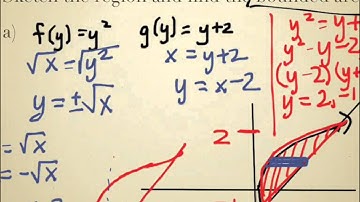 Sketch the region and find the bounded are
a) f(y)=y² g(y)=y+2
√x=√y² x=y+2
y=±√x y=x-2
y²=y+
y²-y-2
(y-2)(y+
y=2,-1
=√x
=-√x
2